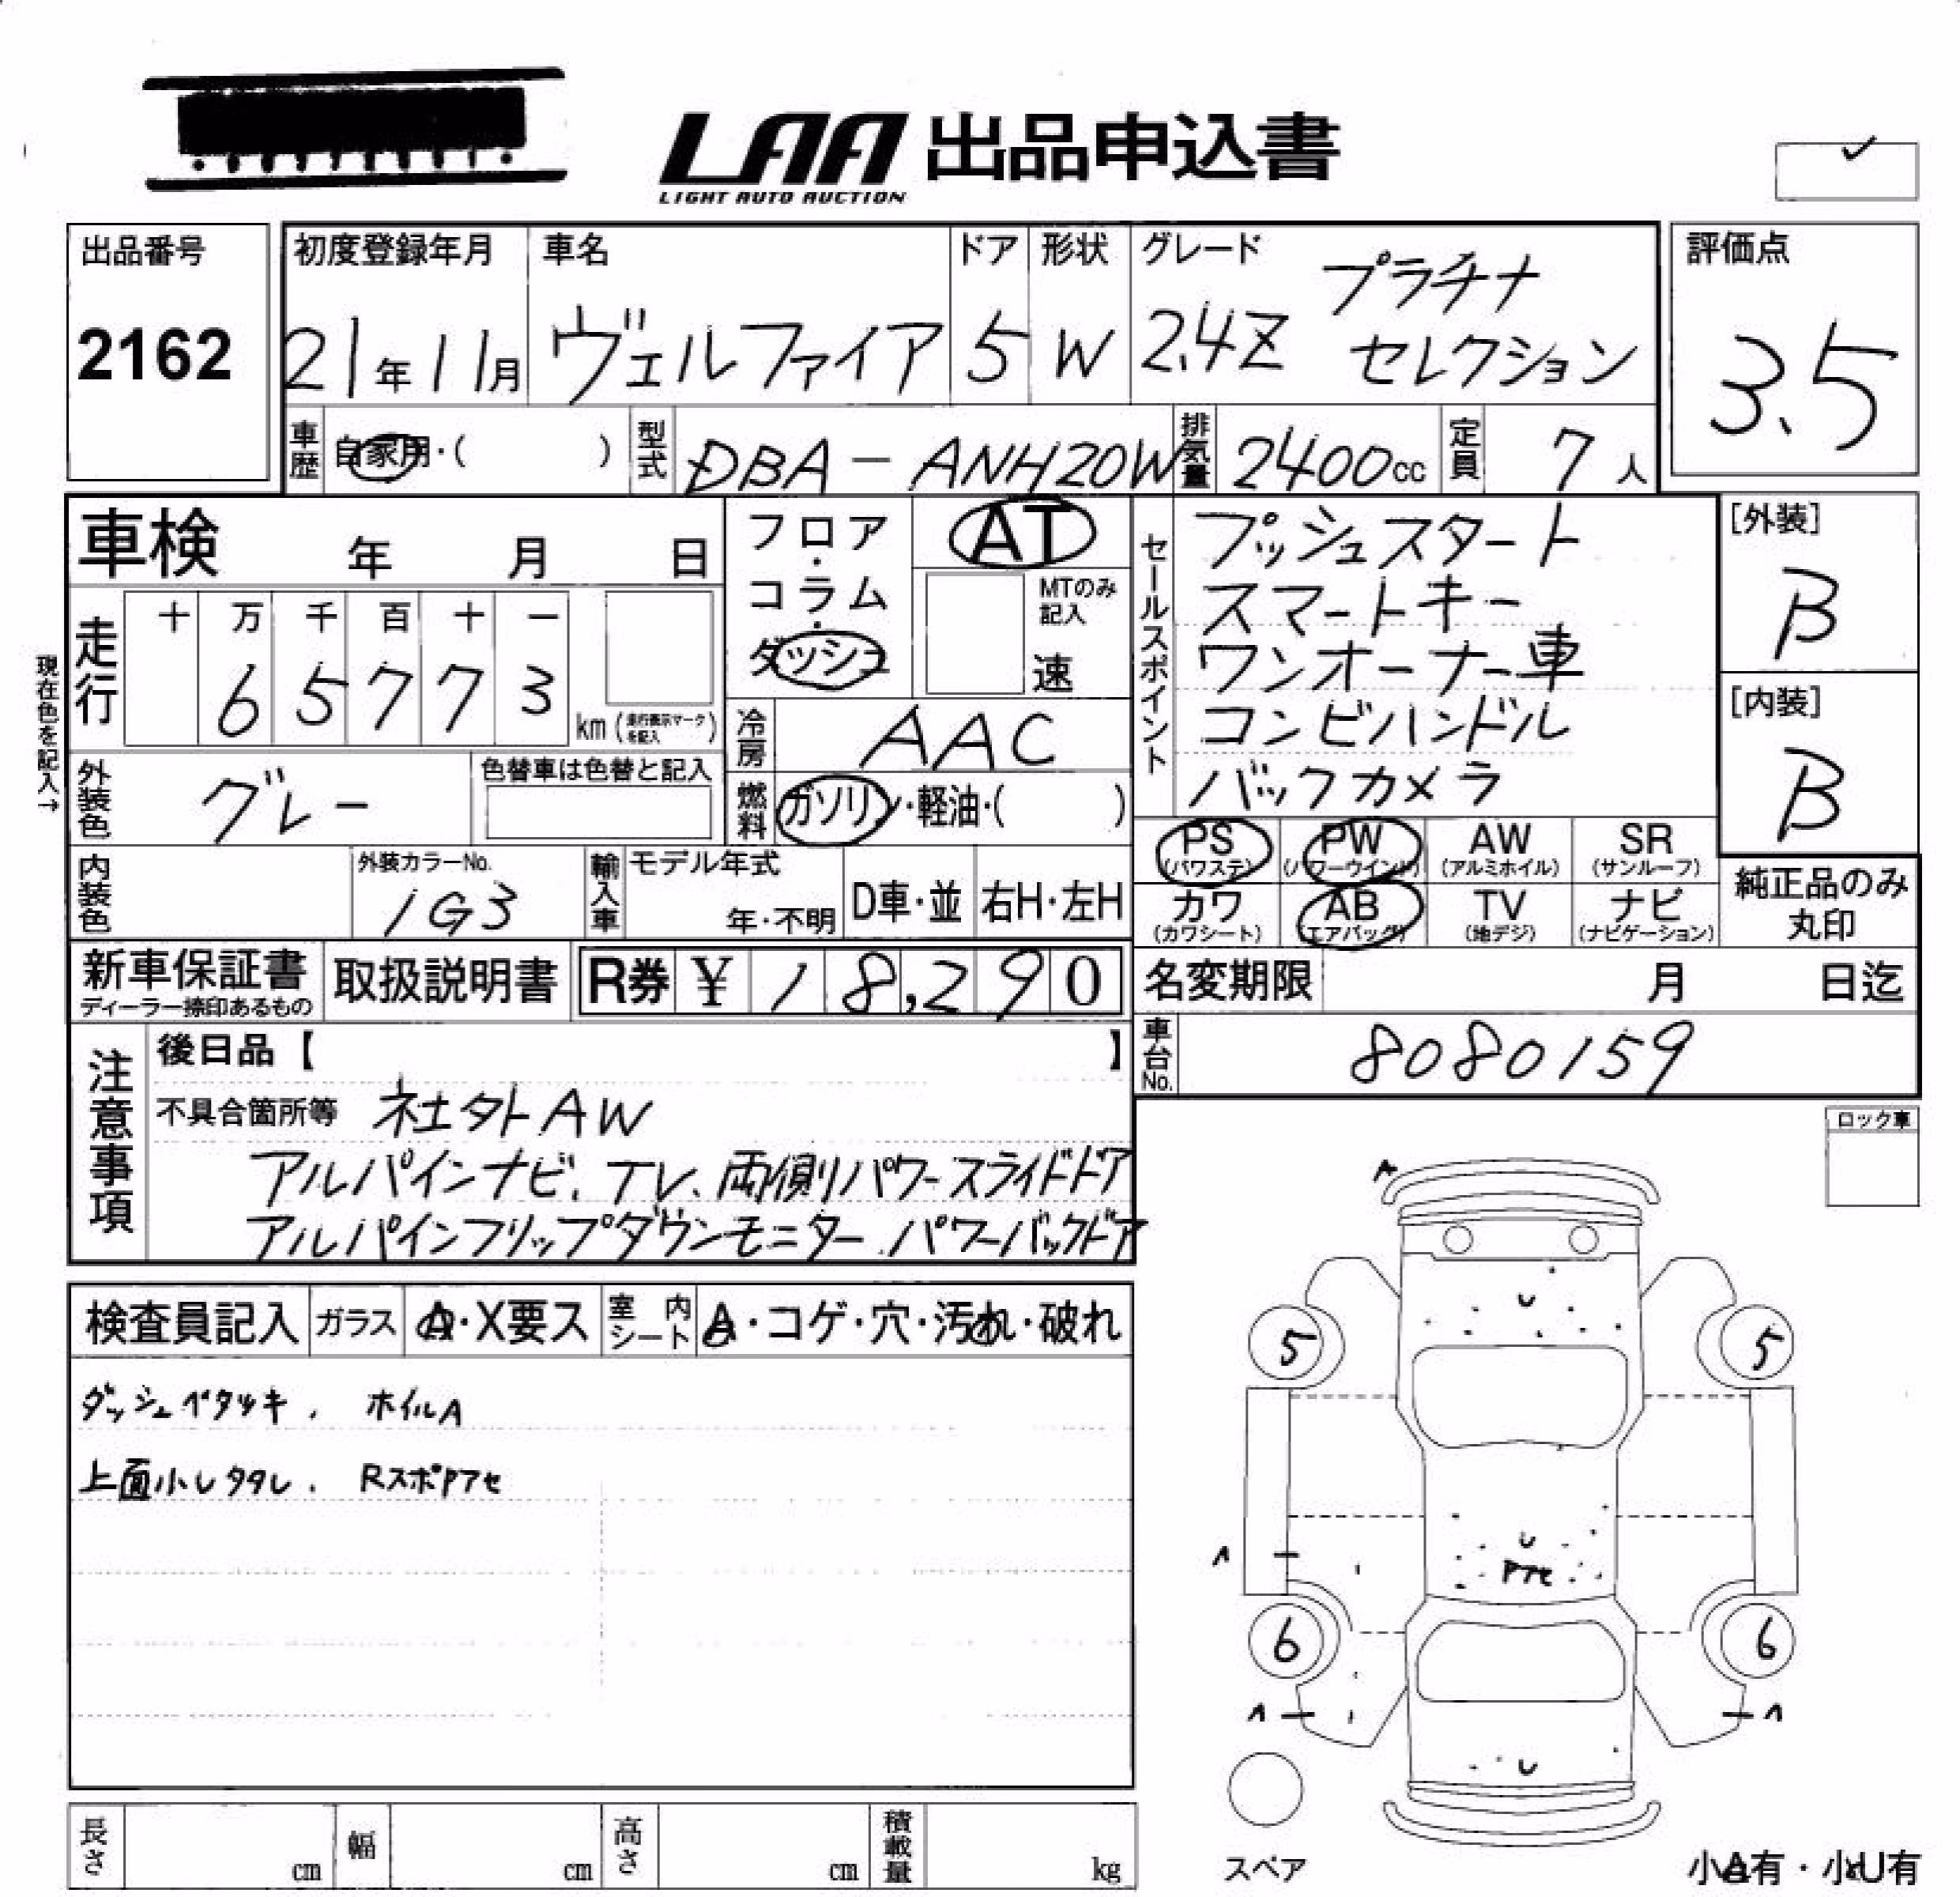 LAA 出品申込書
LIGHT AUTO AUCTION
出品番号
2162
初度登録年月
21年11月
車名
ヴェルファイア
ドア
5
形状
W
グレード
2.4Z プラチナ
セレクション
評価点
3.5
車歴 自家用・( )
型式 DBA-ANH20W
排気量 2400cc
定員 7人
車検 年 月 日
フロア・コラム・ダッシュ
AT
MTのみ記入
速
セールスポイント
プッシュスタート
スマートキー
ワンオーナー車
コンビハンドル
バックカメラ
[外装]
B
[内装]
B
現在色を記入→
走行
十 万 千 百 十 一
6 5 7 7 3
km (走行表示マークを記入)
冷房 AAC
外装色 グレー
色替車は色替と記入
燃料 ガソリン・軽油・( )
PS (パワステ)
PW (パワーウインド)
AW (アルミホイル)
SR (サンルーフ)
カワ (カワシート)
AB (エアバッグ)
TV (地デジ)
ナビ (ナビゲーション)
純正品のみ丸印
内装色
外装カラーNo.
1G3
輸入車
モデル年式
年・不明
D車・並
右H・左H
新車保証書
ディーラー捺印あるもの
取扱説明書
R券 ¥ 18,290
名変期限 月 日迄
車台No. 8080159
注意事項
後日品【 】
不具合箇所等 社外AW
アルパインナビ、TV、両側パワースライドドア
アルパインフリップダウンモニター、パワーバックドア
ロック車
検査員記入
ガラス A・X要ス
室内シート A・コゲ・穴・汚れ・破れ
ダッシュベタツキ、 ホイルA
上面小レタタレ、 RスポPアセ
A
U
5 5
U
Pアセ
A
6 6
A A
U
スペア
長さ cm
幅 cm
高さ cm
積載量 kg
小A有・小U有